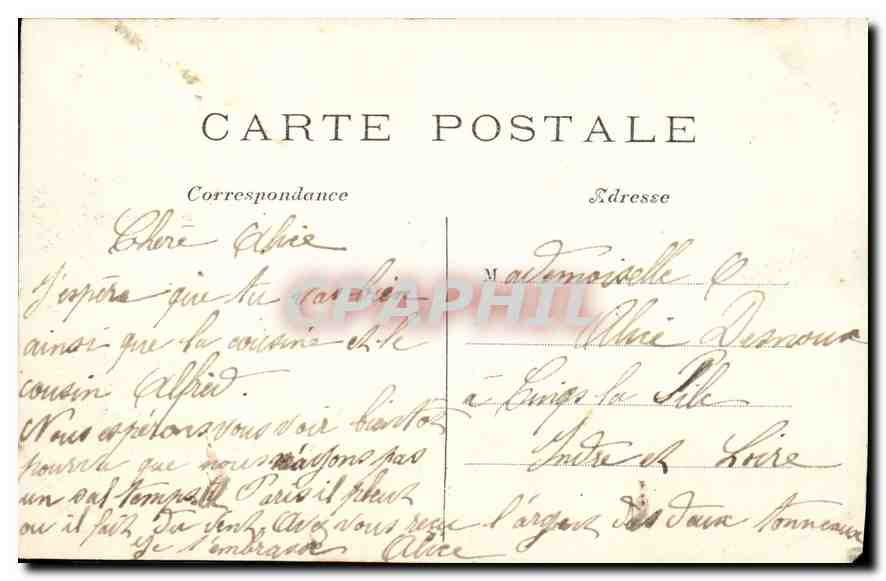 CARTE POSTALE
Correspondance
Adresse
Chere Alice
J'espére que tu vas bien
ainsi que la cousine et le
cousin Alfred.
Nous espérons vous voir bientot
pourvu que nous n'ayons pas
un sal temps Paris il pleut
ou il fait du vent. Avez vous reçu l'argent des deux tonneaux
Je t'embrasse Alice
Mademoiselle
Alice Desnoux
à Cinqs la Pile
Indre et Loire
CPAPHIL